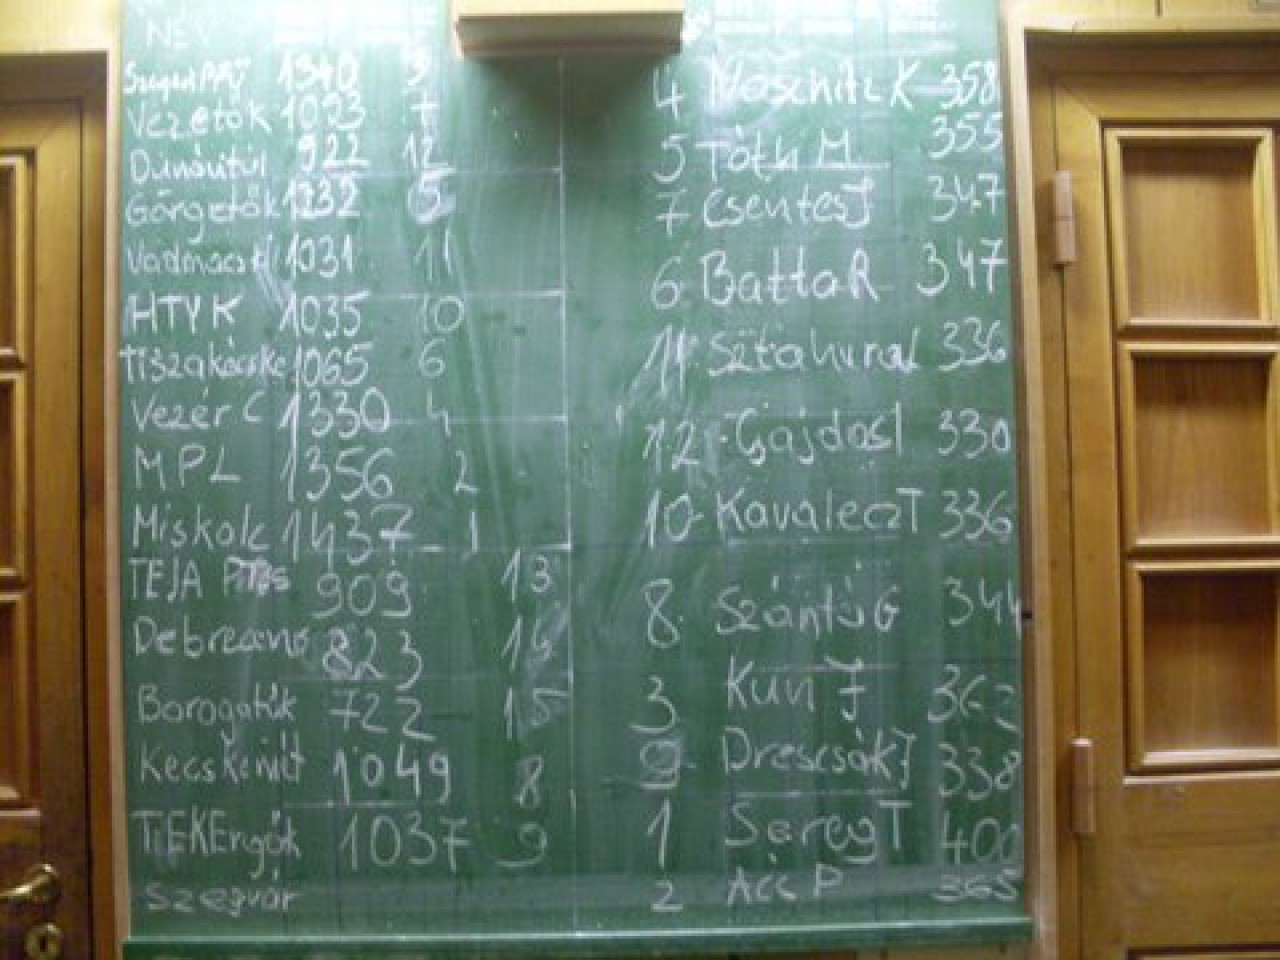 NÉV
1340 3
Vezetők 1093 7
Dunántúl 922 12
Görgetők 1232 5
1031 11
HTYK 1035 10
Tiszakécske 1065 6
Vezér C 1330 4
MPL 1356 2
Miskolc 1437 1
TEJA 909 13
823 14
722 15
Kecskemét 1049 8
1037 9
Szegvár
4 Moschitz K 358
5 Tóth M 355
7 Csentes J 347
6 Batta R 347
11 336
12 Gajdos I 330
10 Kavalecz T 336
8 Szántó G 344
3 Kun J 363
9 Drescsák J 338
1 Sereg T 400
2 Ács P 365